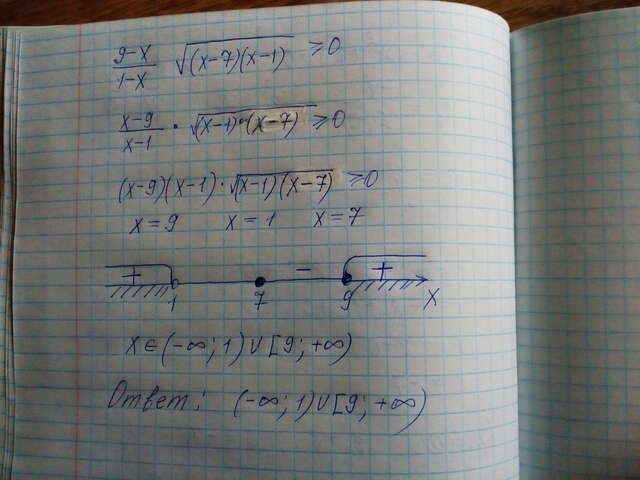 9-x/1-x √(x-7)(x-1) ≥0
x-9/x-1 · √(x-1)·(x-7) ≥0
(x-9)(x-1)·√(x-1)(x-7) ≥0
x=9 x=1 x=7
+ − +
1 7 9 x
x∈(-∞; 1)∪[9; +∞)
Ответ: (-∞; 1)∪[9; +∞)